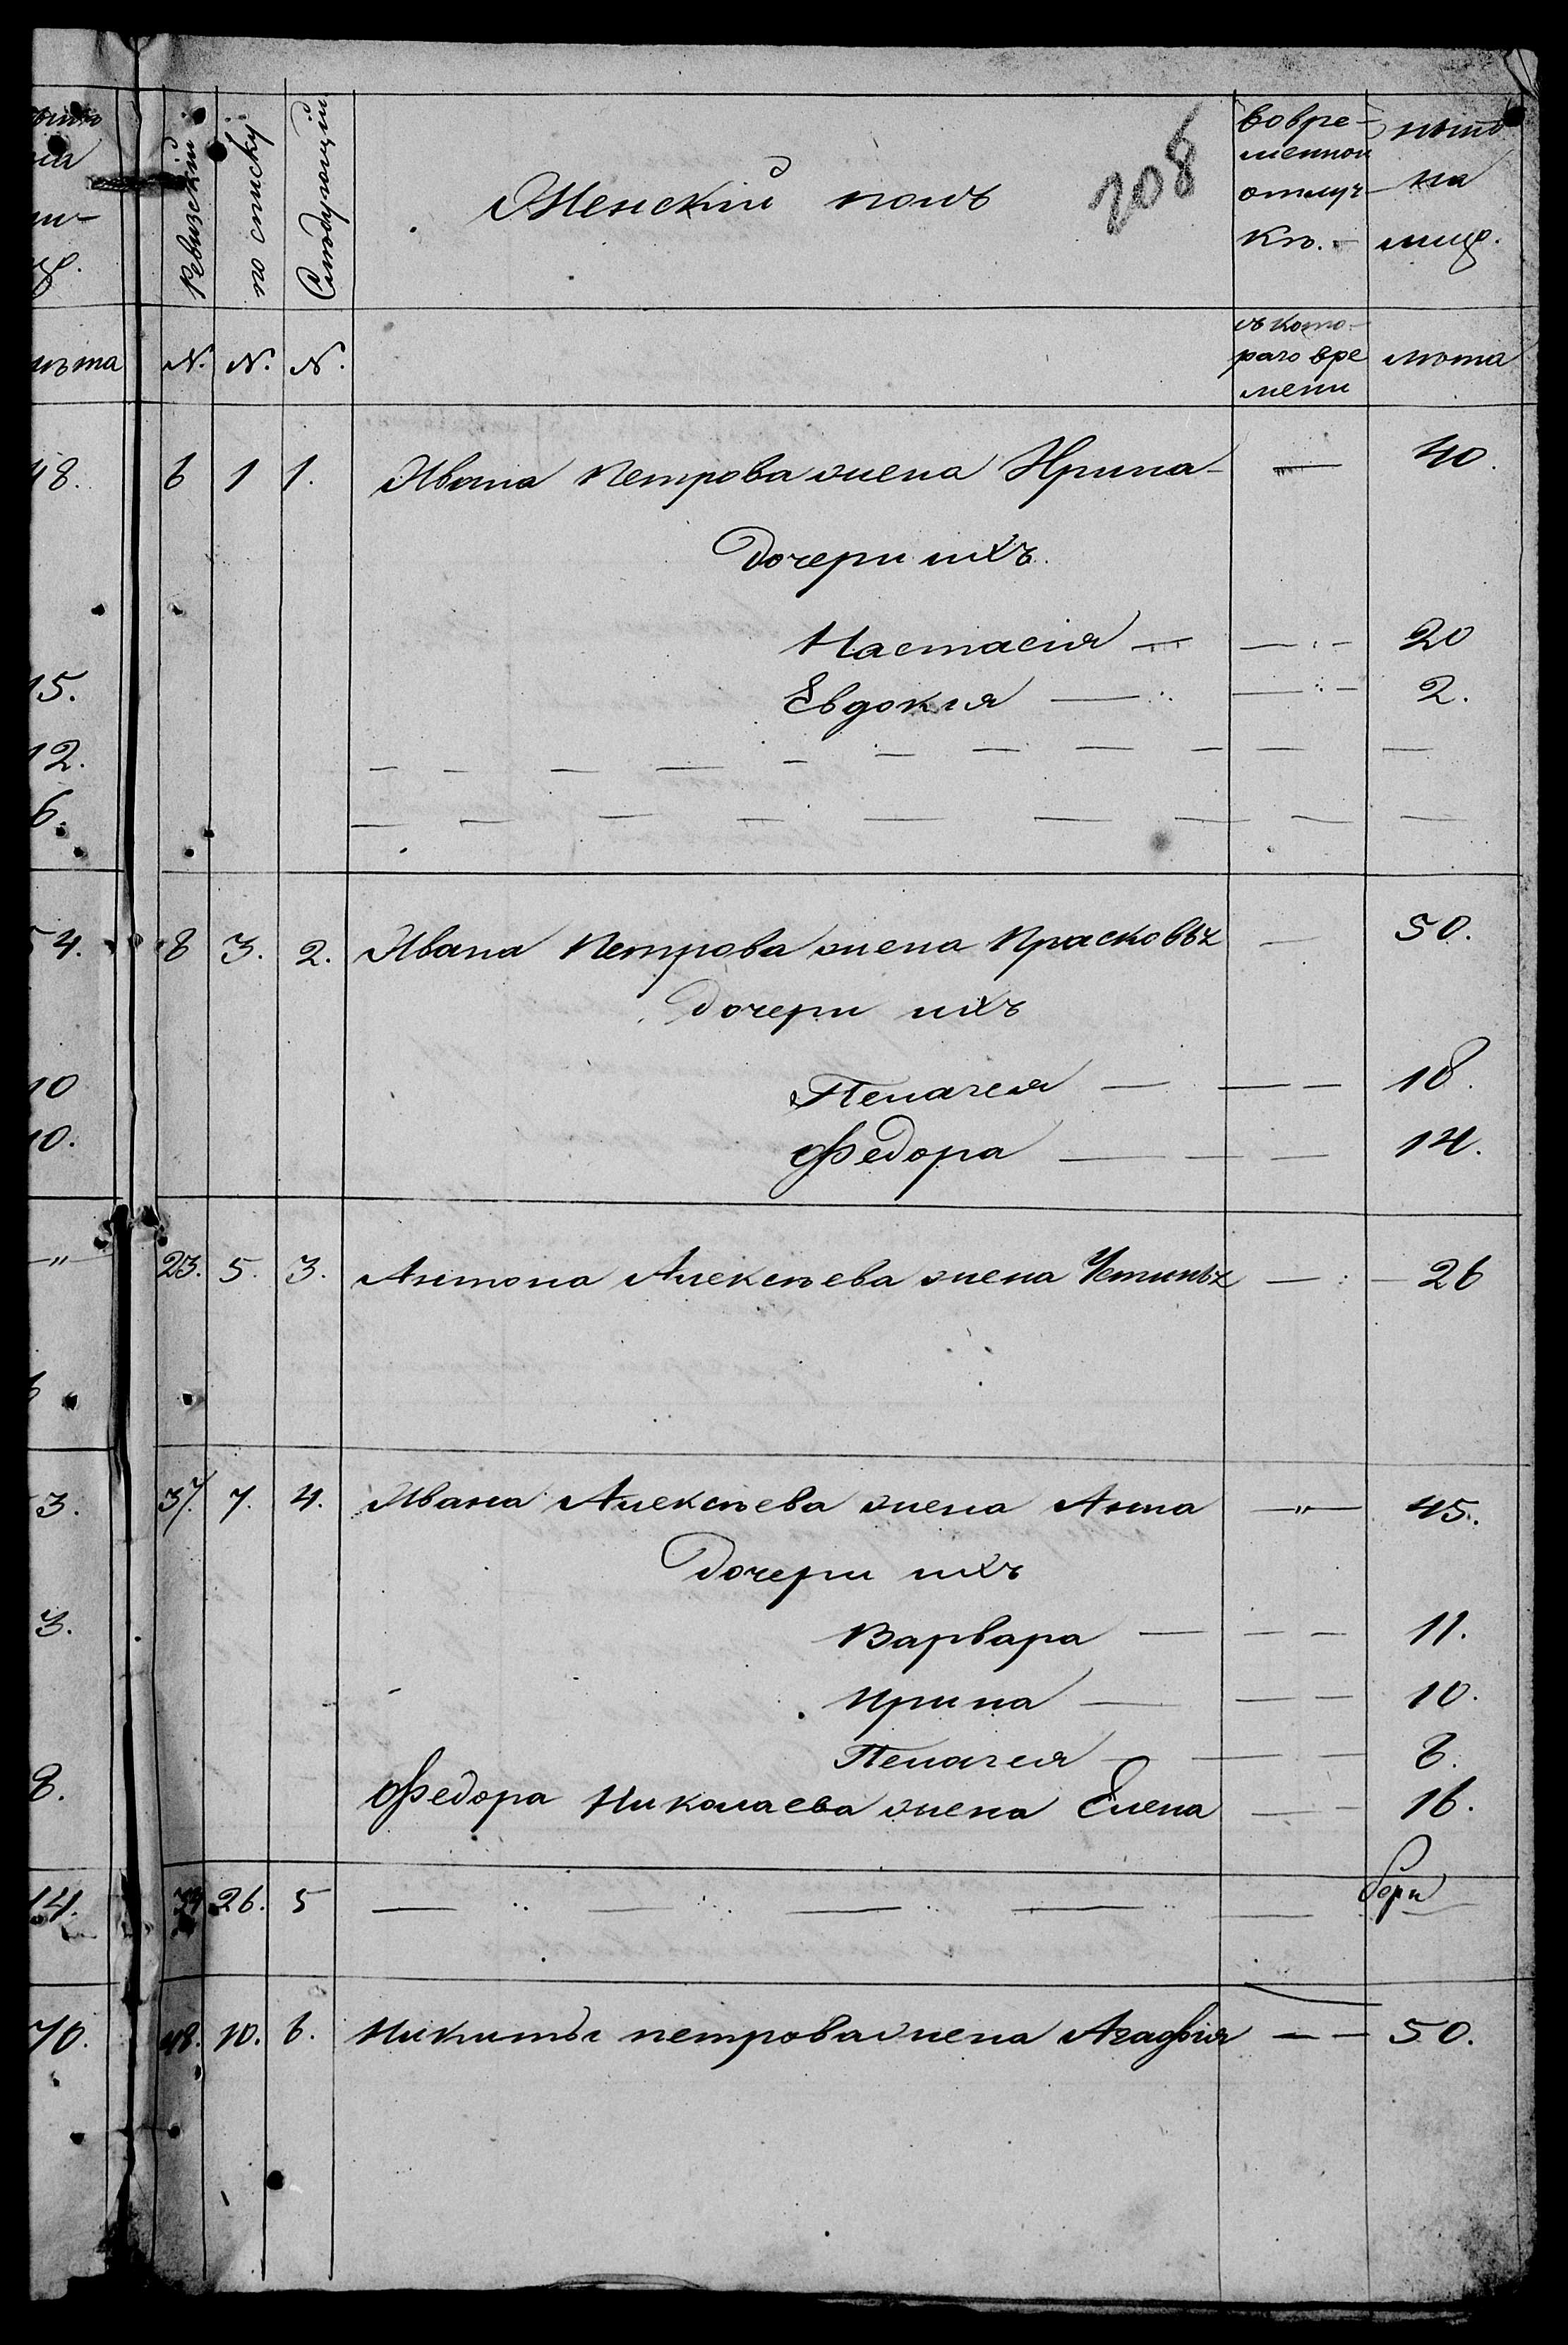 208
Ревизскій по списку Слѣдующій Женскій полъ Вовре-менной отлуч-кѣ. нынѣ на лицо.
лѣта N. N. N. съ кото-раго вре мени лѣта
48. 6 1 1. Ивана Петрова жена Ирина — 40.
Дочери ихъ.
Настасия — 20
15. Евдокия — 2.
12.
6.
54. 8 3. 2. Ивана Петрова жена Прасковья — 50.
Дочери ихъ
10 Пелагея — 18.
10. Федора — 14.
—"— 23. 5. 3. Антона Алексѣева жена Устинья — 26
3. 37. 7. 4. Ивана Алексѣева жена Анна —"— 45.
Дочери ихъ
3. Варвара — 11.
Ирина — 10.
Пелагея — 8.
8. Федора Николаева жена Елена — 16.
14. 39 26. 5 —
70. 48. 10. 6. Никиты петрова жена Агафія — 50.